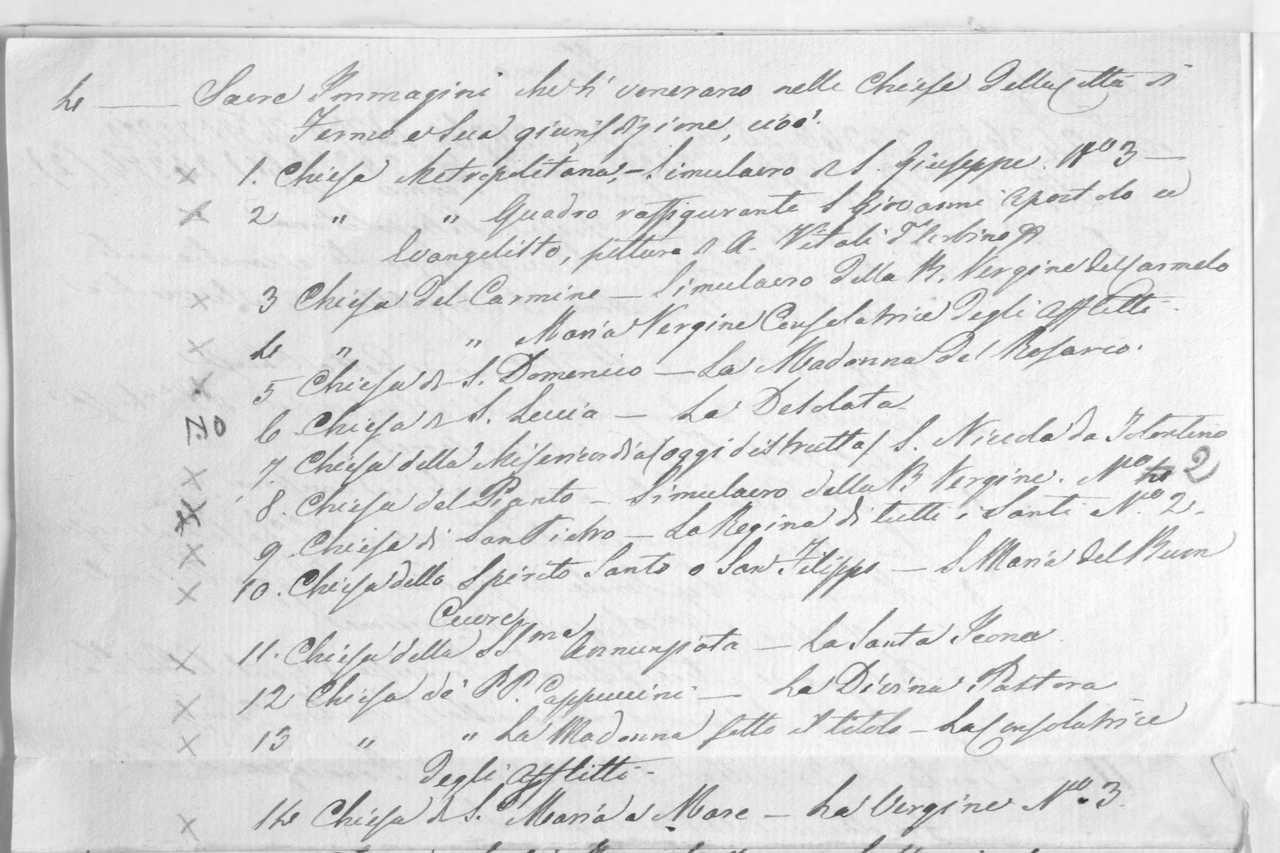 4 — Sacre Immagini che si venerano nelle Chiese della Città di
Fermo e sua giurisdizione, cioè:
× 1. Chiesa Metropolitana, - Simulacro di S. Giuseppe. Nº 3 —
× 2 " " Quadro raffigurante S. Giovanni apostolo ed
Evangelista, pittura di A. Vitali d'Urbino
× 3 Chiesa del Carmine — Simulacro della B. Vergine del Carmelo
× 4 " " Maria Vergine Consolatrice degli afflitti.
× 5 Chiesa di S. Domenico — La Madonna del Rosario.
N.º 6 Chiesa di S. Lucia — La Desolata
× 7. Chiesa della Misericordia (oggi distrutta) S. Nicola da Tolentino
× 8. Chiesa del Pianto — Simulacro della B. Vergine. Nº 2
× 9. Chiesa di San Pietro — La Regina di tutti i Santi Nº 2.
× 10. Chiesa dello Spirito Santo o San Filippo — S. Maria del Buon
Cuore
× 11. Chiesa della SSma Annunziata — La Santa Icona
× 12 Chiesa de' PP. Cappuccini — La Divina Pastora
× 13 " " La Madonna sotto il titolo — La Consolatrice
degli afflitti —
× 14 Chiesa di S. Maria a Mare — La Vergine Nº 3.